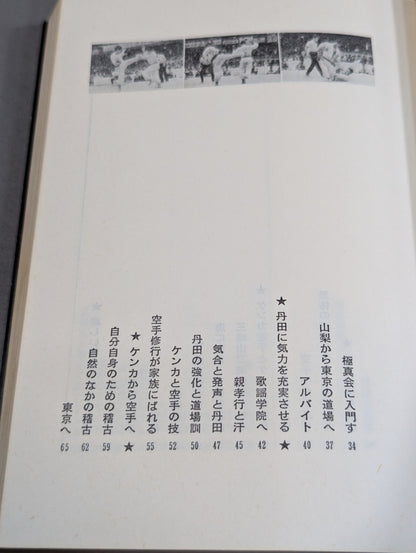 極真会に入門す 34
山梨から東京の道場へ 37
アルバイト 40
★丹田に気力を充実させる★
歌謡学院へ 42
親孝行と汗 45
気合と発声と丹田 47
丹田の強化と道場訓 50
ケンカと空手の技 52
空手修行が家族にばれる 55
★ケンカから空手へ★
自分自身のための稽古 59
自然のなかの稽古 62
東京へ 65